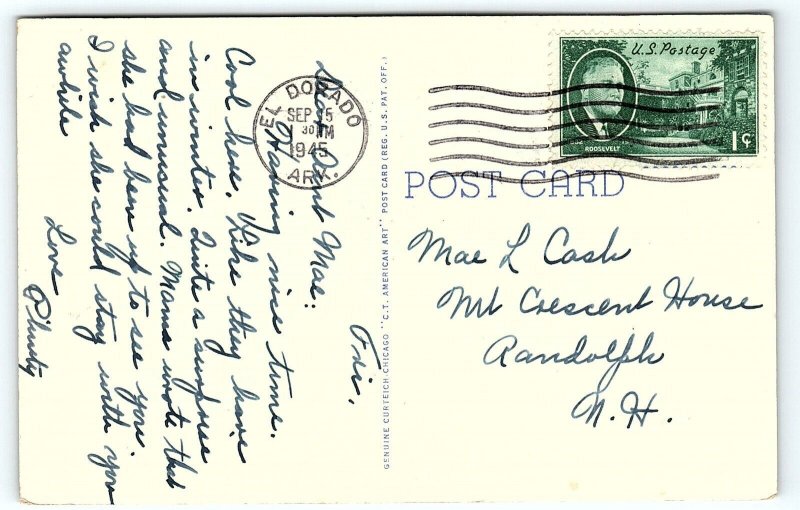 Fri.
Dear Aunt Mae:
Having nice time.
Cool here. Like they have
in winter. Quite a surprise
and unusual. Mama wrote that
she had been up to see you.
I wish she could stay with you
awhile
Love
EL DORADO
SEP 15
1 30 PM
1945
ARK.
GENUINE CURTEICH-CHICAGO "C.T. AMERICAN ART" POST CARD (REG. U.S. PAT. OFF.)
U.S. Postage
ROOSEVELT
1¢
POST CARD
Mae L Cash
Mt Crescent House
Randolph
N.H.